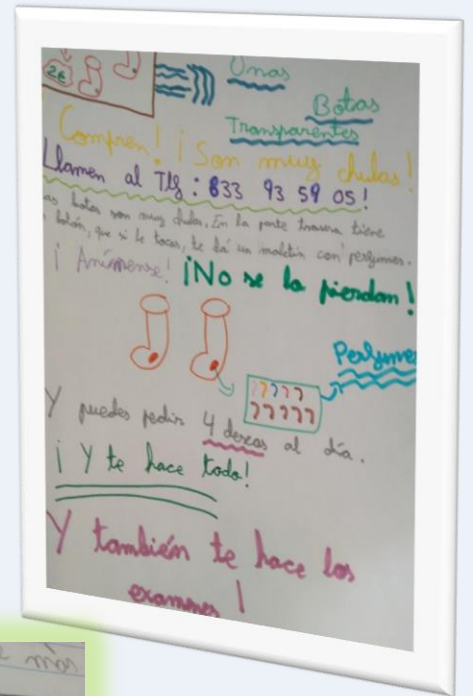 2€
Unas
Botas
Transparentes
Compren! ¡Son muy chulas!
Llamen al Tlf: 833 93 59 05!
as botas son muy chulas. En la parte trasera tiene
botón, que si le tocas, te dá un maletín con perfumes.
¡Anímense! ¡No se la pierdan!
Perfumes
Y puedes pedir 4 deseos al día.
¡Y te hace todo!
Y también te hace los
examenes!
e más